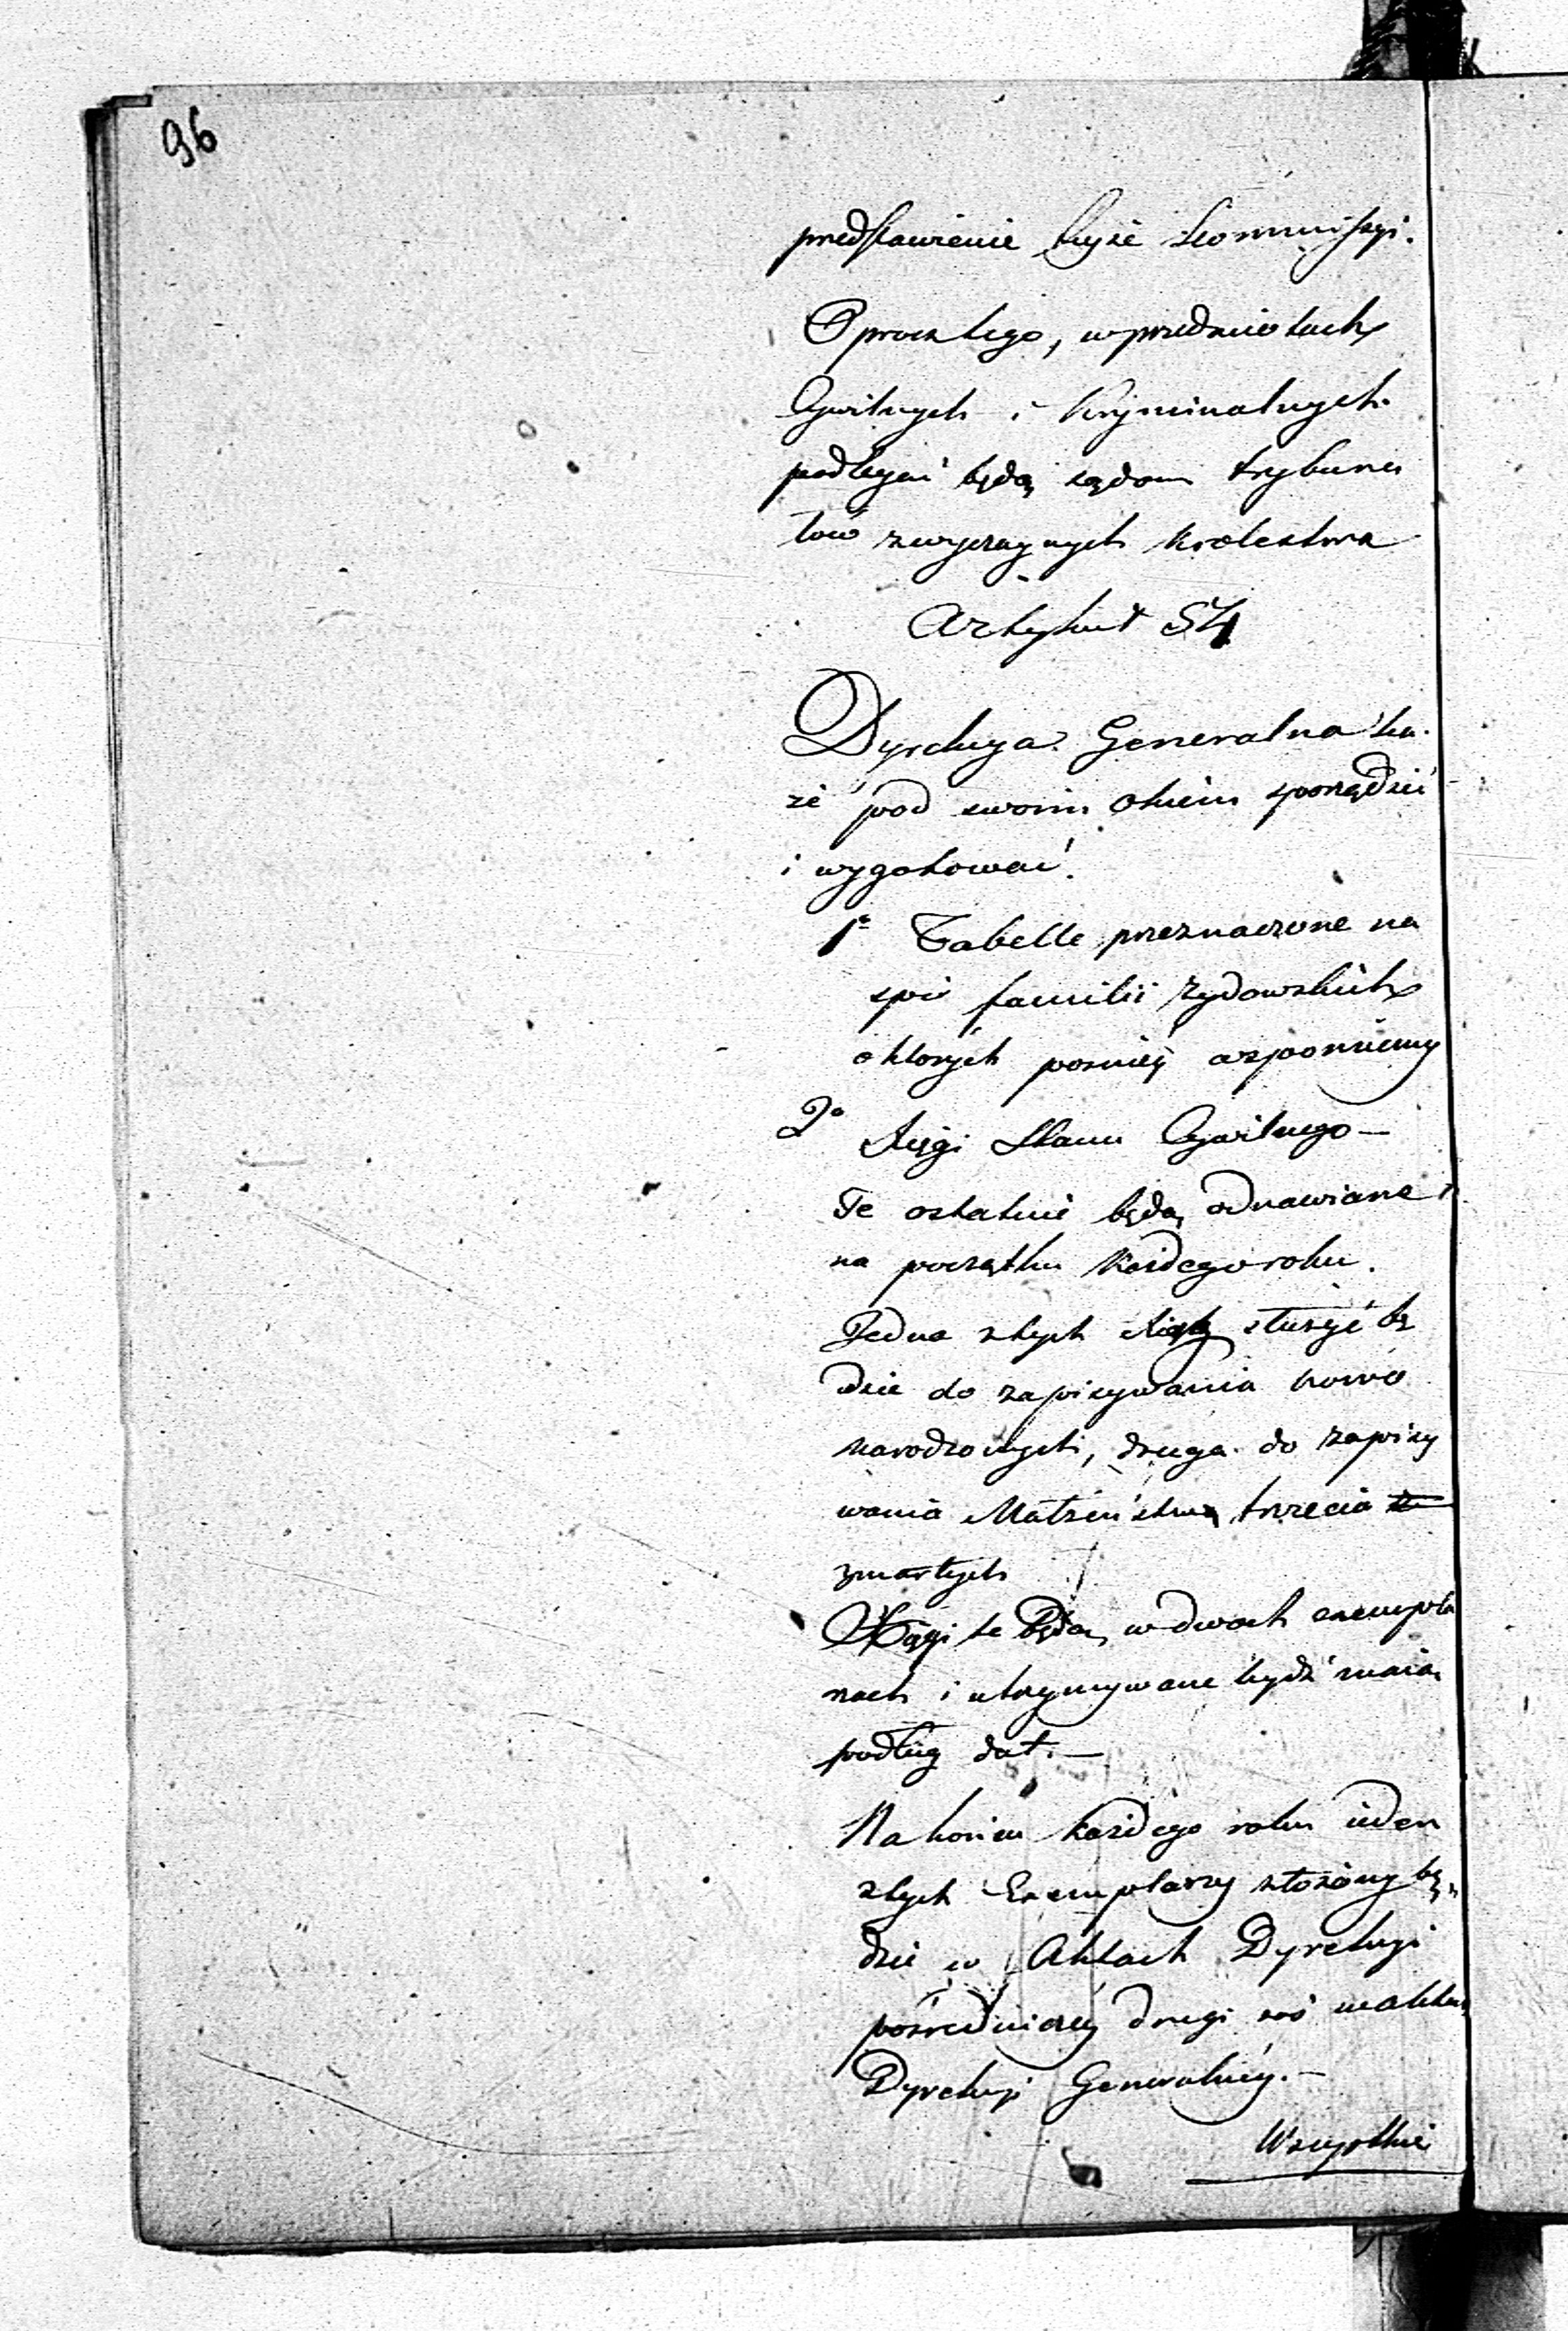 96
predstawienie teyże kommissyi.
Oprocz tego, w przedmiotach
Cywilnych i Kryminalnych
podlegać będą sądom trybuna
łow zwyczaynych Krolestwa
Artykuł 54
Dyrekcya Generalna ka-
że pod swoim okiem sporządzić
i wygotować.
1º Tabelle przeznaczone na
spis familii Zydowskich
o ktorych pozniey wspomniemy
2º Xięgi Stanu Cywilnego —
Te ostatnie będą odnawiane
na początku każdego roku.
Jedna z tych Xiąg służyć bę
dzie do zapisywania nowo
narodzonych, druga do zapisy
wania Małżeństwa, trzecia
zmarłych
Xięgi te będą w dwoch exempla
rzach i utrzymywane bydź maią
podług dat. —
Na koncu każdego roku ieden
z tych Exemplarzy złożony bę„
dzie w Aktach Dyrekcyi
pośredniczey drugi zaś w aktach
Dyrekcyi Generalney. —
Wszystkie